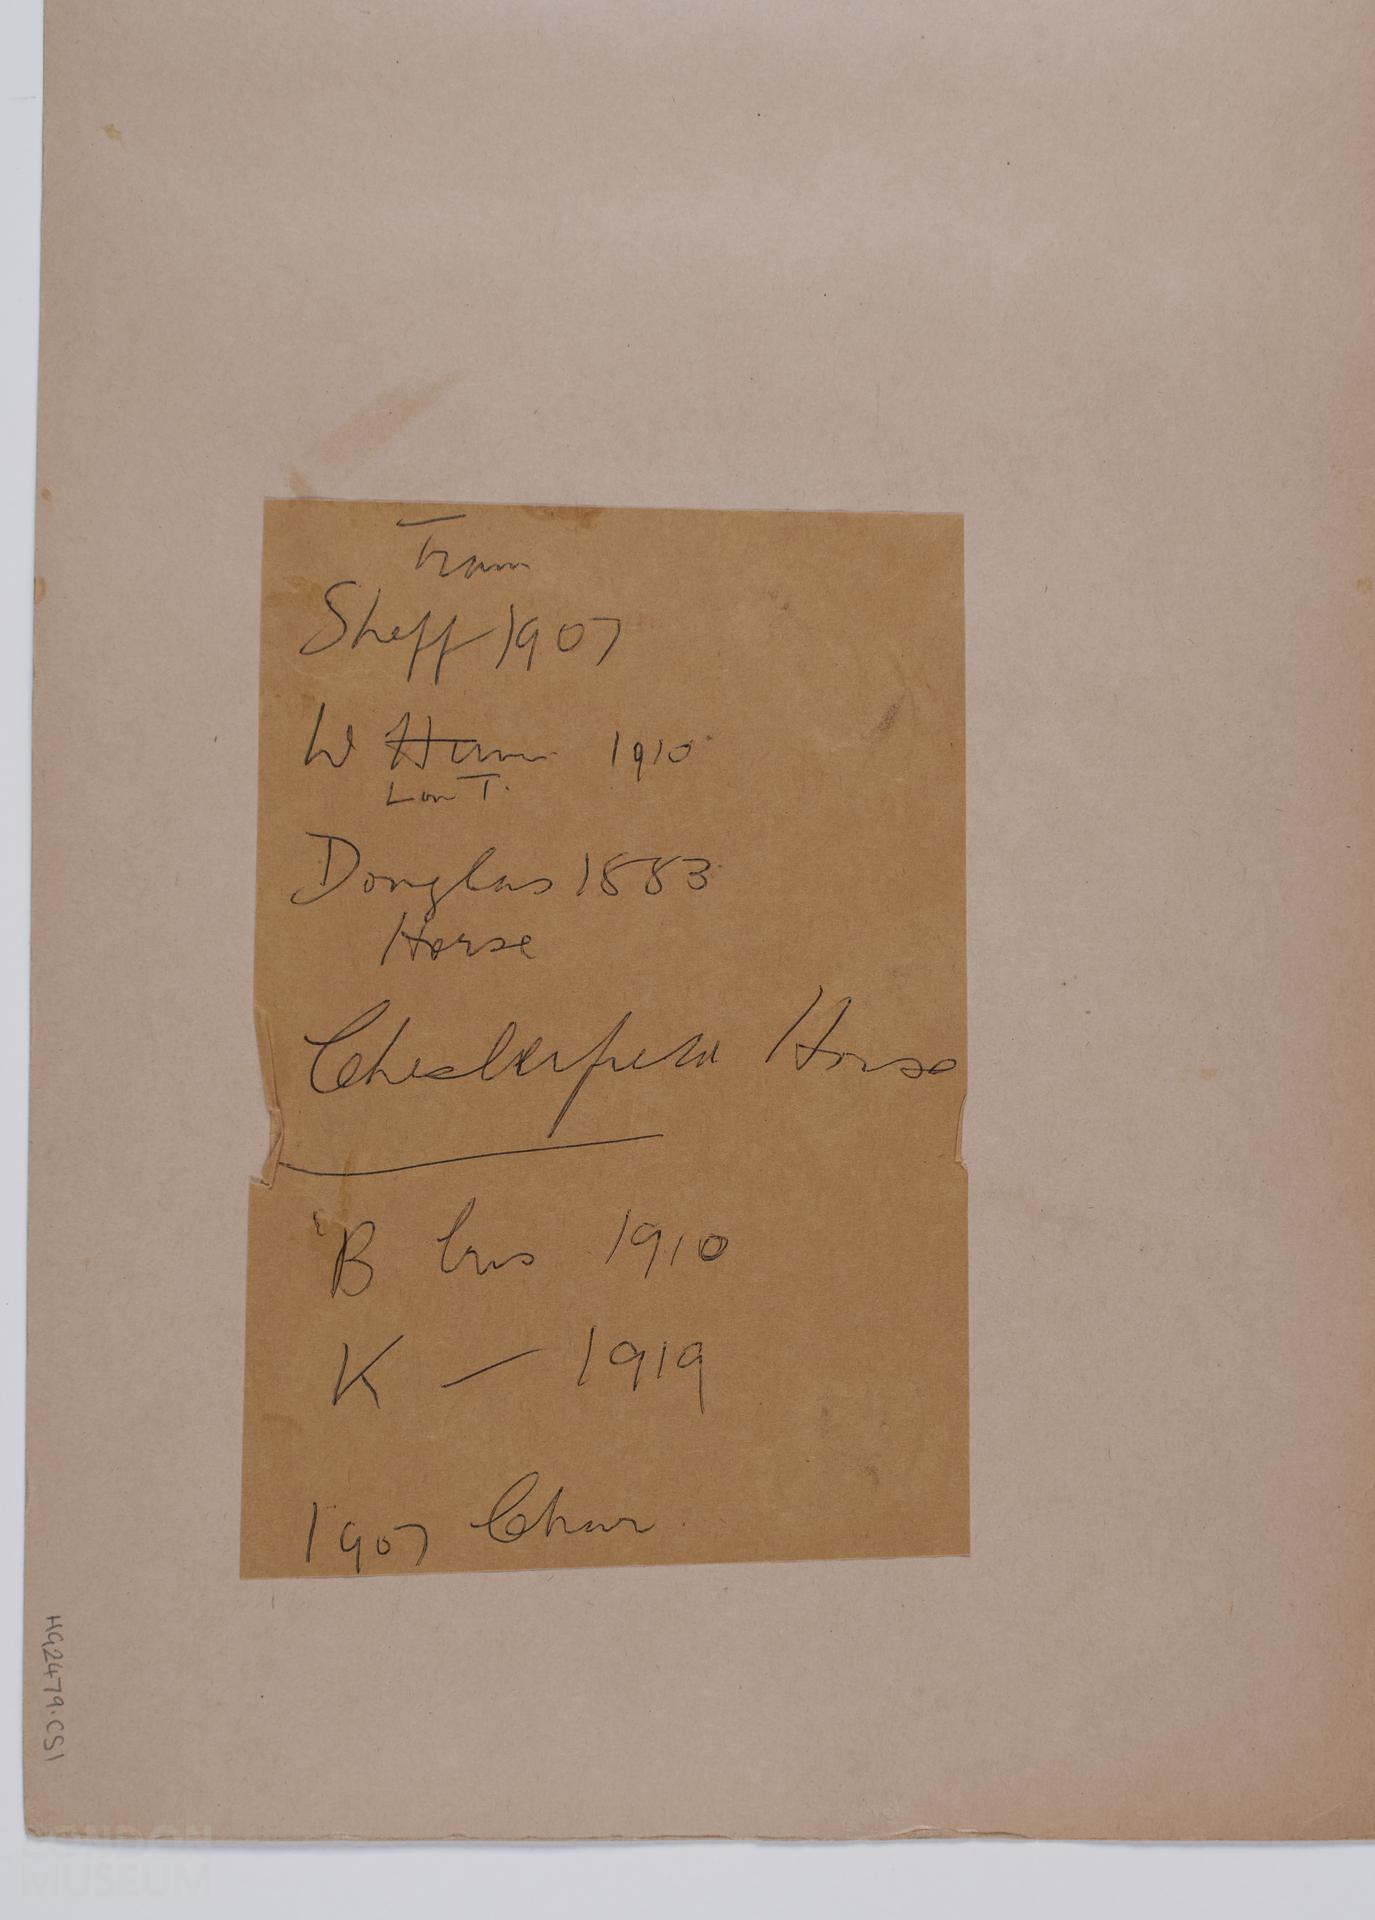 Tram
Sheff 1907
W Ham 1910
Lon T.
Douglas 1883
Horse
Chesterfield Horse
B bus 1910
K — 1919
1907 Char
HG2479.CS1
LONDON
MUSEUM